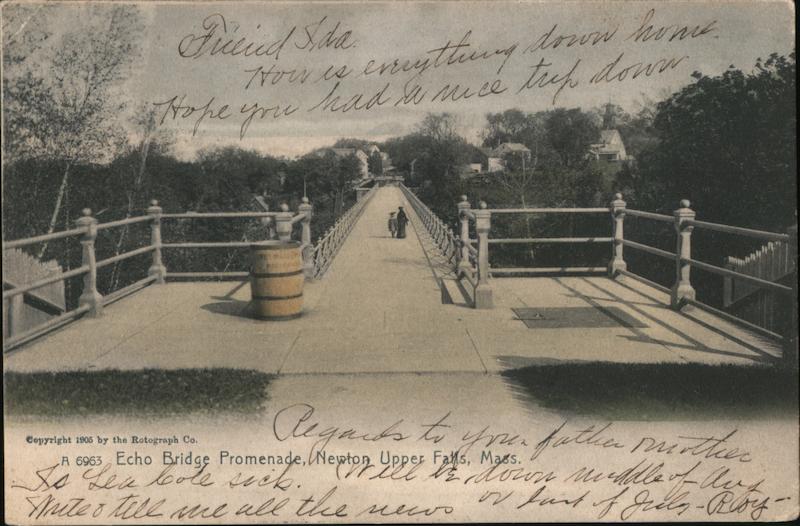 Friend Ida.
How is everything down home.
Hope you had a nice trip down
Regards to your father mother
Copyright 1905 by the Rotograph Co.
A 6963 Echo Bridge Promenade, Newton Upper Falls, Mass.
Is Lea Cole sick. Will be down middle of Aug
Write & tell me all the news or last of July - Roy -